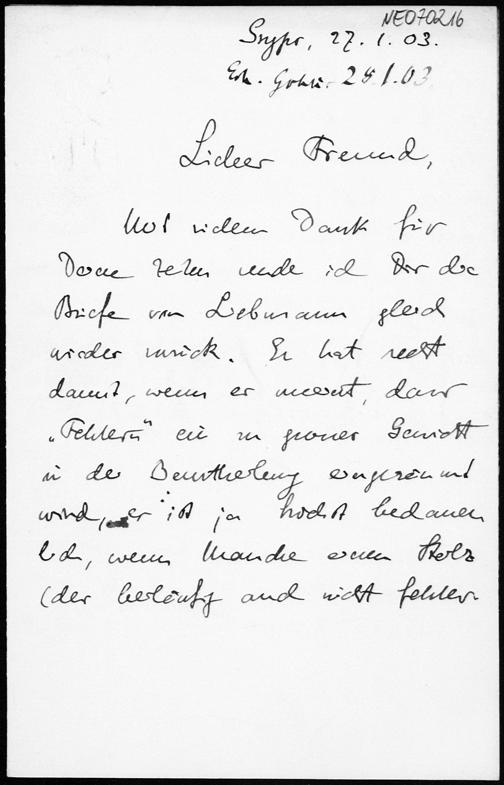 NE070216
27.1.03.
28.1.03
Lieber Freund,
Mit vielem Dank für
Deine Zeilen sende ich Dir die
Briefe von Liebmann gleich
wieder zurück. Er hat recht
damit, wenn er meint, dass
„Fehlern" ein zu grosser Gewicht
in der Beurtheilung eingeräumt
wird, er ist ja höchst bedauer
lich, wenn Manche einen Stolz
(der beiläufig auch nicht fehler-